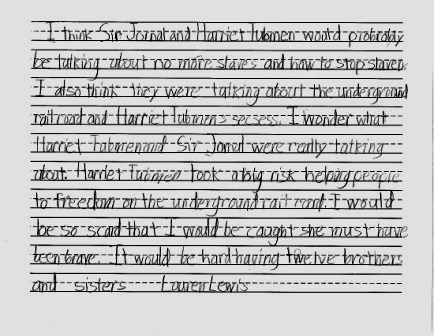 I think Sir Jornal and Harriet Tubmen would probrobly
be talking about no more slaves and how to stop slavery.
I also think they were talking about the underground
rail road and Harriet Tubmens secsess. I wonder what
Harriet Tubmen and Sir Jornal were really talking
about. Harriet Tubmen took a big risk helping people
to freedom on the underground rail road. I would
be so scaid that I would be caught she must have
been brave. It would be hard having twelve brothers
and sisters Lauren Lewis